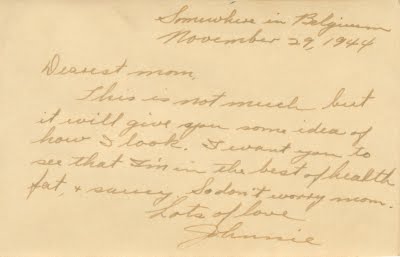 Somewhere in Belgium
November 29, 1944
Dearest mom,
This is not much but
it will give you some idea of
how I look. I want you to
see that I'm in the best of health
fat, & saucy. So don't worry mom.
Lots of love
Johnnie